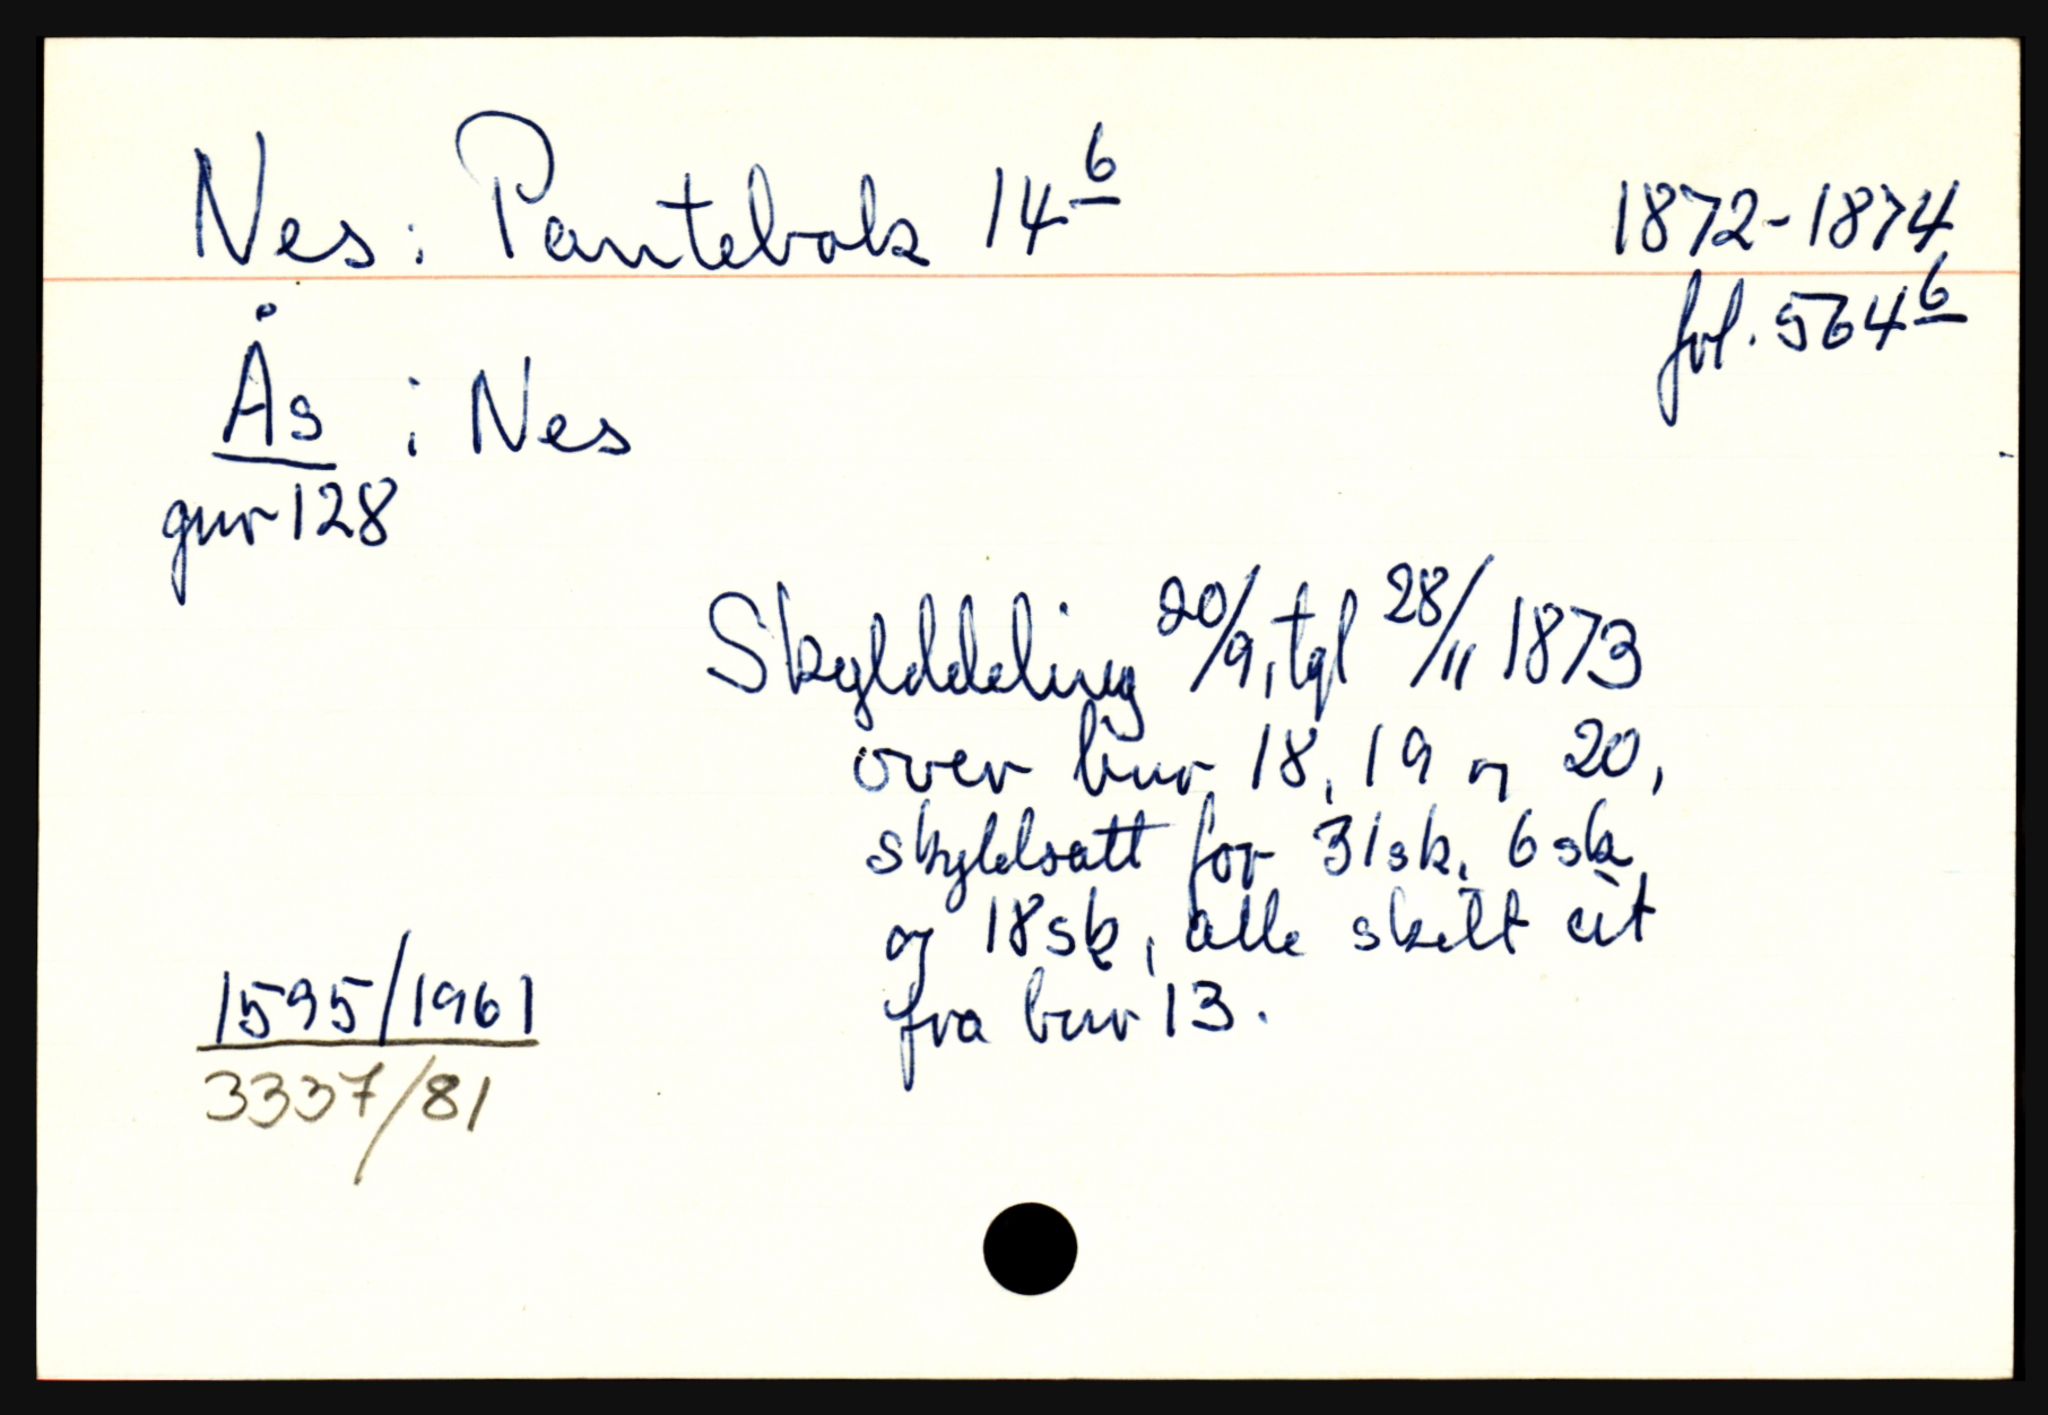 Nes: Pantebok 14 6
1872-1874
fol. 564 6
Ås i Nes
gnr 128
Skylddeling 20/9, tgl 28/11 1873
over bnr 18, 19 og 20,
skyldsatt for 31 sk, 6 sk
og 18 sk, alle skilt ut
fra bnr 13.
1595/1961
3337/81